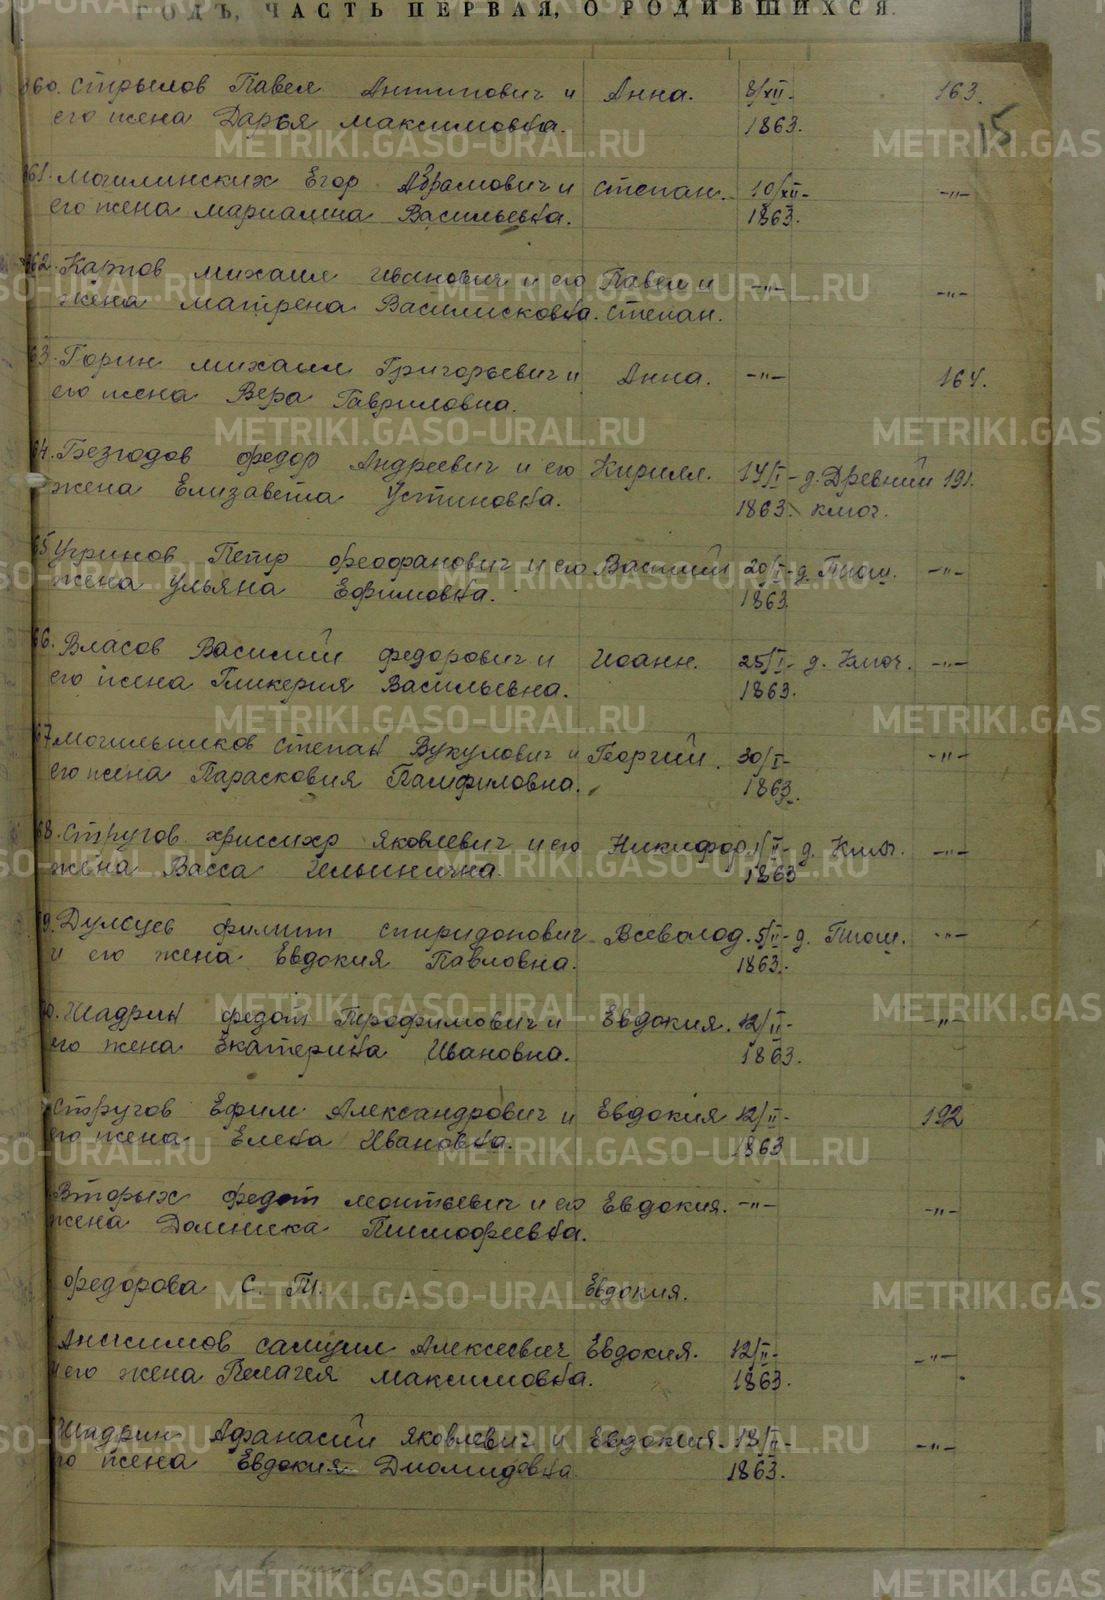 ГОДЪ, ЧАСТЬ ПЕРВАЯ, О РОДИВШИХСЯ.
15
60. Стрылов Павел Антипович и Анна. 8/XII- 163.
его жена Дарья Максимовна. 1863.
61. Могилинских Егор Абрамович и Степан. 10/XII- -"-
его жена Марианна Васильевна. 1863.
62. Карпов Михаил Иванович и его Павел и -"- -"-
жена Матрена Василисковна. Степан.
63. Горин Михаил Григорьевич и Анна. -"- 164.
его жена Вера Гавриловна.
64. Безгодов Федор Андреевич и его Кирилл. 14/I- д. Древний 191.
жена Елизавета Устиновна. 1863. ключ.
65. Угринов Петр Феофанович и его Василий 20/I- д. Тиош. -"-
жена Ульяна Ефимовна. 1863
66. Власов Василий Федорович и Иоанн. 25/I- д. Ключ. -"-
его жена Гликерия Васильевна. 1863.
67. Могильников Степан Вукулович и Георгий. 30/I- -"-
его жена Парасковия Памфиловна. 1863.
68. Стругов Яковлевич и его Никифор 1/II- д. Ключ. -"-
жена Васса Ильинична. 1863
69. Дулсцев Филипп Спиридонович Всеволод. 5/II- д. Тиош. -"-
и его жена Евдокия Павловна. 1863.
70. Шадрин Федот Трофимович и Евдокия. 12/II- -"-
его жена Екатерина Ивановна. 1863.
Стругов Ефим Александрович и Евдокия 12/II- 192
его жена Елена Ивановна. 1863
Вторых Федот Леонтьевич и его Евдокия. -"- -"-
жена Домника Тимофеевна.
Федорова С. Т. Евдокия.
Анисимов Самуил Алексеевич Евдокия. 12/II- -"-
и его жена Пелагея Максимовна. 1863.
Шадрин Афанасий Яковлевич и Евдокия. 18/II- -"-
его жена Евдокия Диомидовна 1863.
METRIKI.GASO-URAL.RU